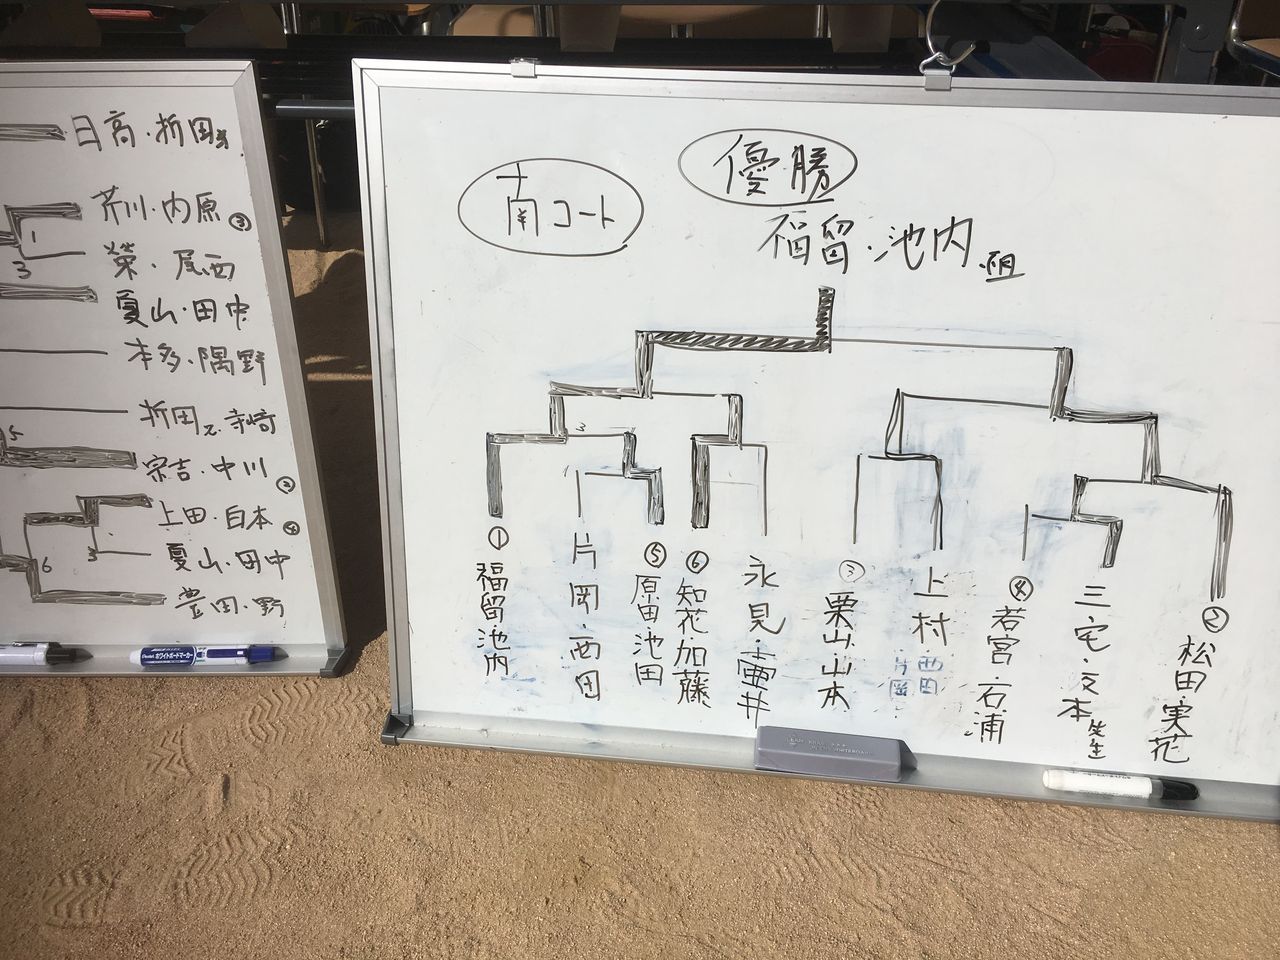 日高・折田
芹川・内原 ③
1
榮・尾西
3
夏山・田中
本多・隅野
折田・寺崎
5
宗吉・中川 ②
上田・白本
夏山・田中
3
6
豊田・野
ホワイトボードマーカー
南コート
優勝
福留・池内組
① 福留池内
片岡・西田
⑤ 原田・池田
⑥ 知花・加藤
永見・壷井
③ 栗山・山本
上村
西田
片岡
④ 若宮・石浦
三宅・文本先生
② 松田・実花